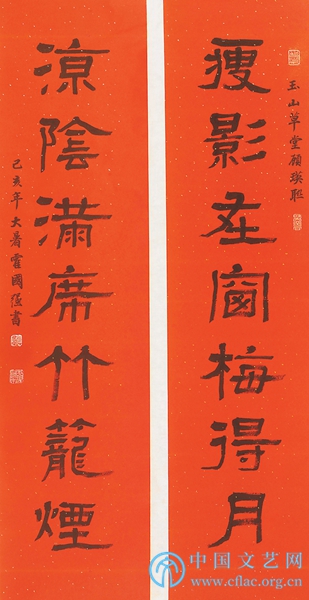 玉山草堂顧瑛聯
瘦影在窗梅得月
涼陰滿席竹籠煙
己亥年大暑霍國强書
中国文艺网
www.cflac.org.cn